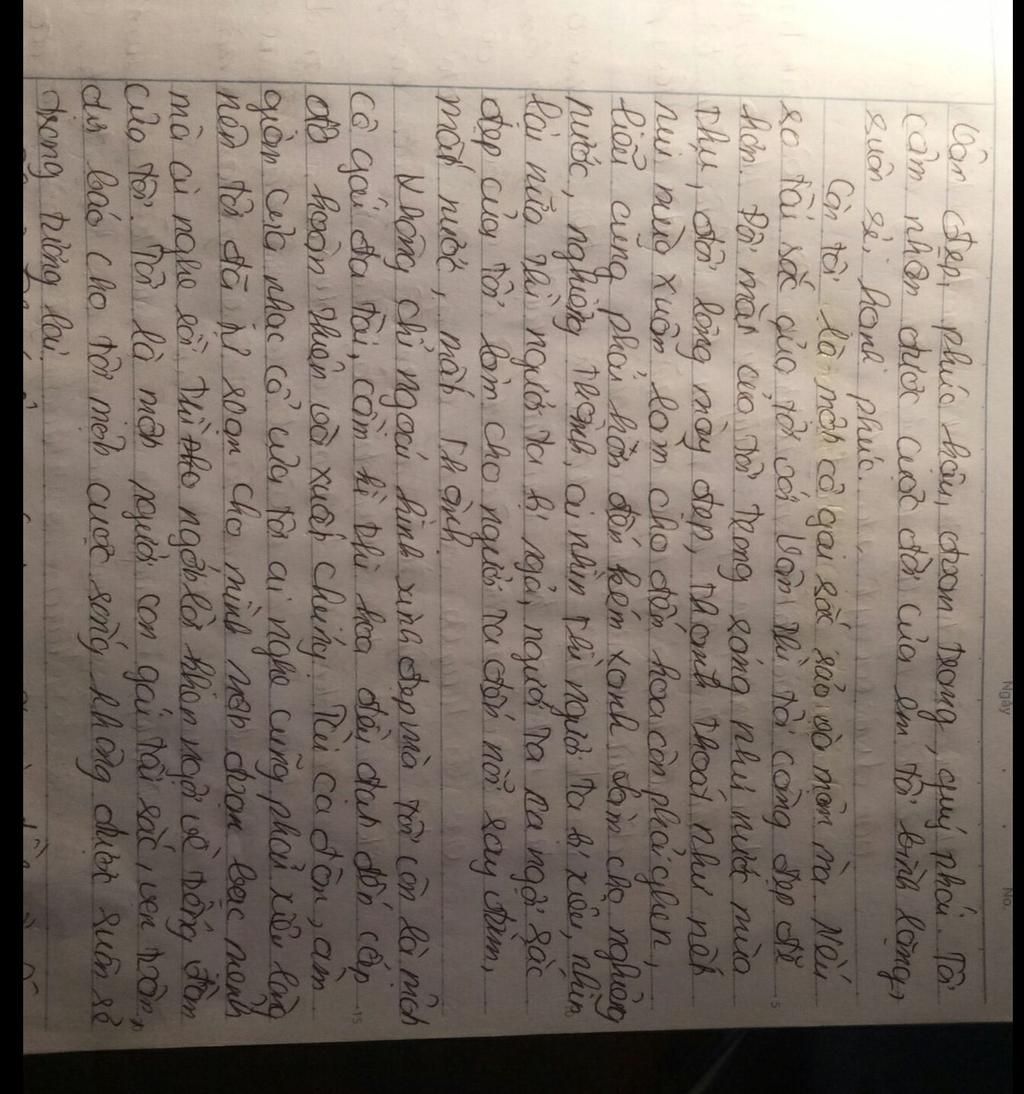 Vân đẹp, phúc hậu, đoan trang, quý phái. Tôi
cảm nhận được cuộc đời của em tôi bình lặng,
suôn sẻ, hạnh phúc.
Còn tôi là một cô gái sắc sảo và mặn mà. Nếu
so tài sắc của tôi với Vân thì tôi càng đẹp đẽ
hơn. Đôi mắt của tôi trong sáng như nước mùa
thu, đôi lông mày đẹp, thanh thoát như nét
núi mùa xuân làm cho đến hoa còn phải ghen,
liễu cũng phải hờn đến kém xanh làm cho nghiêng
nước, nghiêng thành, ai nhìn thì người ta bị xiêu, nhìn
lần nữa thì người ta bị ngã, người ta ca ngợi sắc
đẹp của tôi làm cho người ta đến nỗi say đắm,
mất nước, mất thành
Không chỉ ngoại hình xinh đẹp mà tôi còn là một
cô gái đa tài, cầm kì thi họa đều đạt đến cấp
độ hoàn thiện và xuất chúng. Tài ca đàn, âm
giản của nhạc cổ của tôi ai nghe cũng phải xiêu lòng
nên tôi đã tự soạn cho mình một đoạn bạc mệnh
mà ai nghe rồi thì ngớt lời khen ngợi về tiếng đàn
của tôi. Tôi là một người con gái tài sắc vẹn toàn,
dự báo cho tôi một cuộc sống không được suôn sẻ
trong tương lai.
Ngày
No.
5
15